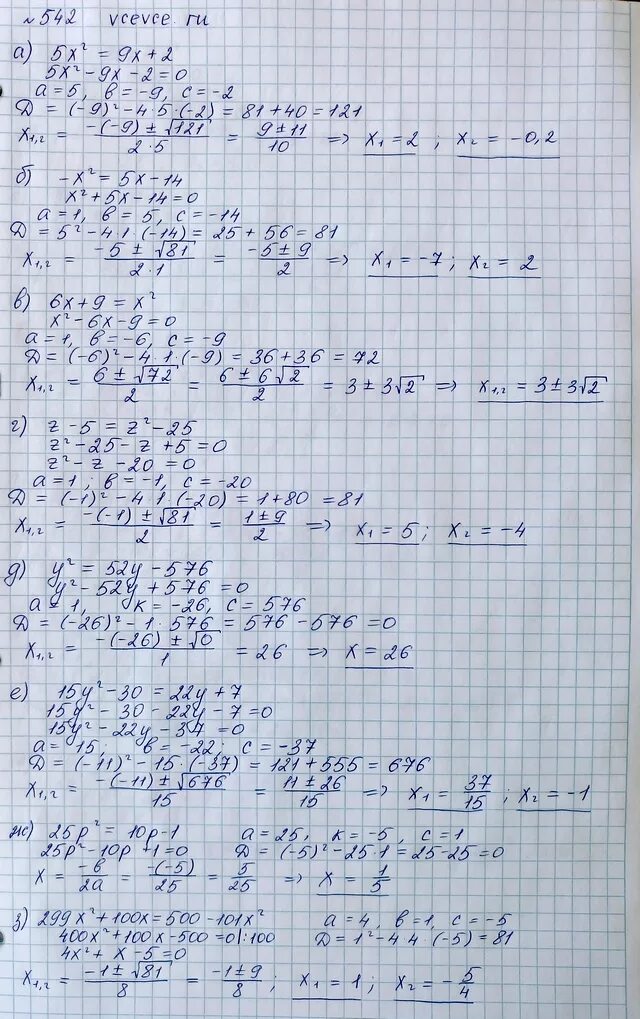 №542 vcevce.ru
а) 5x² = 9x + 2
5x² - 9x - 2 = 0
a = 5, в = -9, c = -2
Д = (-9)² - 4·5·(-2) = 81 + 40 = 121
x₁,₂ = (-(-9) ± √121)/(2·5) = (9 ± 11)/10 => x₁ = 2 ; x₂ = -0,2
б) -x² = 5x - 14
x² + 5x - 14 = 0
a = 1, в = 5, c = -14
Д = 5² - 4·1·(-14) = 25 + 56 = 81
x₁,₂ = (-5 ± √81)/(2·1) = (-5 ± 9)/2 => x₁ = -7 ; x₂ = 2
в) 6x + 9 = x²
x² - 6x - 9 = 0
a = 1, в = -6, c = -9
Д = (-6)² - 4·1·(-9) = 36 + 36 = 72
x₁,₂ = (6 ± √72)/2 = (6 ± 6√2)/2 = 3 ± 3√2 => x₁,₂ = 3 ± 3√2
г) z - 5 = z² - 25
z² - 25 - z + 5 = 0
z² - z - 20 = 0
a = 1 ; в = -1, c = -20
Д = (-1)² - 4·1·(-20) = 1 + 80 = 81
x₁,₂ = (-(-1) ± √81)/2 = (1 ± 9)/2 => x₁ = 5 ; x₂ = -4
д) y² = 52y - 576
y² - 52y + 576 = 0
a = 1, к = -26, c = 576
Д = (-26)² - 1·576 = 576 - 576 = 0
x₁,₂ = (-(-26) ± √0)/1 = 26 => x = 26
е) 15y² - 30 = 22y + 7
15y² - 30 - 22y - 7 = 0
15y² - 22y - 37 = 0
a = 15 ; в = -22 ; c = -37
Д = (-11)² - 15·(-37) = 121 + 555 = 676
x₁,₂ = (-(-11) ± √676)/15 = (11 ± 26)/15 => x₁ = 37/15 ; x₂ = -1
ж) 25p² = 10p - 1 a = 25, к = -5, c = 1
25p² - 10p + 1 = 0 Д = (-5)² - 25·1 = 25 - 25 = 0
x = -в/2a = -(-5)/25 = 5/25 => x = 1/5
з) 299x² + 100x = 500 - 101x² a = 4, в = 1, c = -5
400x² + 100x - 500 = 0 |:100 Д = 1² - 4·4·(-5) = 81
4x² + x - 5 = 0
x₁,₂ = (-1 ± √81)/8 = (-1 ± 9)/8 ; x₁ = 1 ; x₂ = -5/4